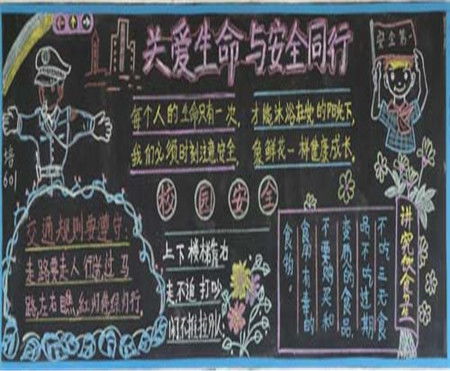 关爱生命与安全同行
安全第一
每个人的生命只有一次,
我们必须时刻注意安全,
才能沐浴在党的阳光下,
象鲜花一样健康成长。
培
601
校园安全
交通规则要遵守,
走路要走人行道,过马
路,左右瞧,红灯停绿灯行。
上下楼梯靠右
走不追打叫
闹不推拉别人
讲究饮食卫生
不吃三无食
品不吃过期
变质的食品
不要购买和
食用有毒的
食物。